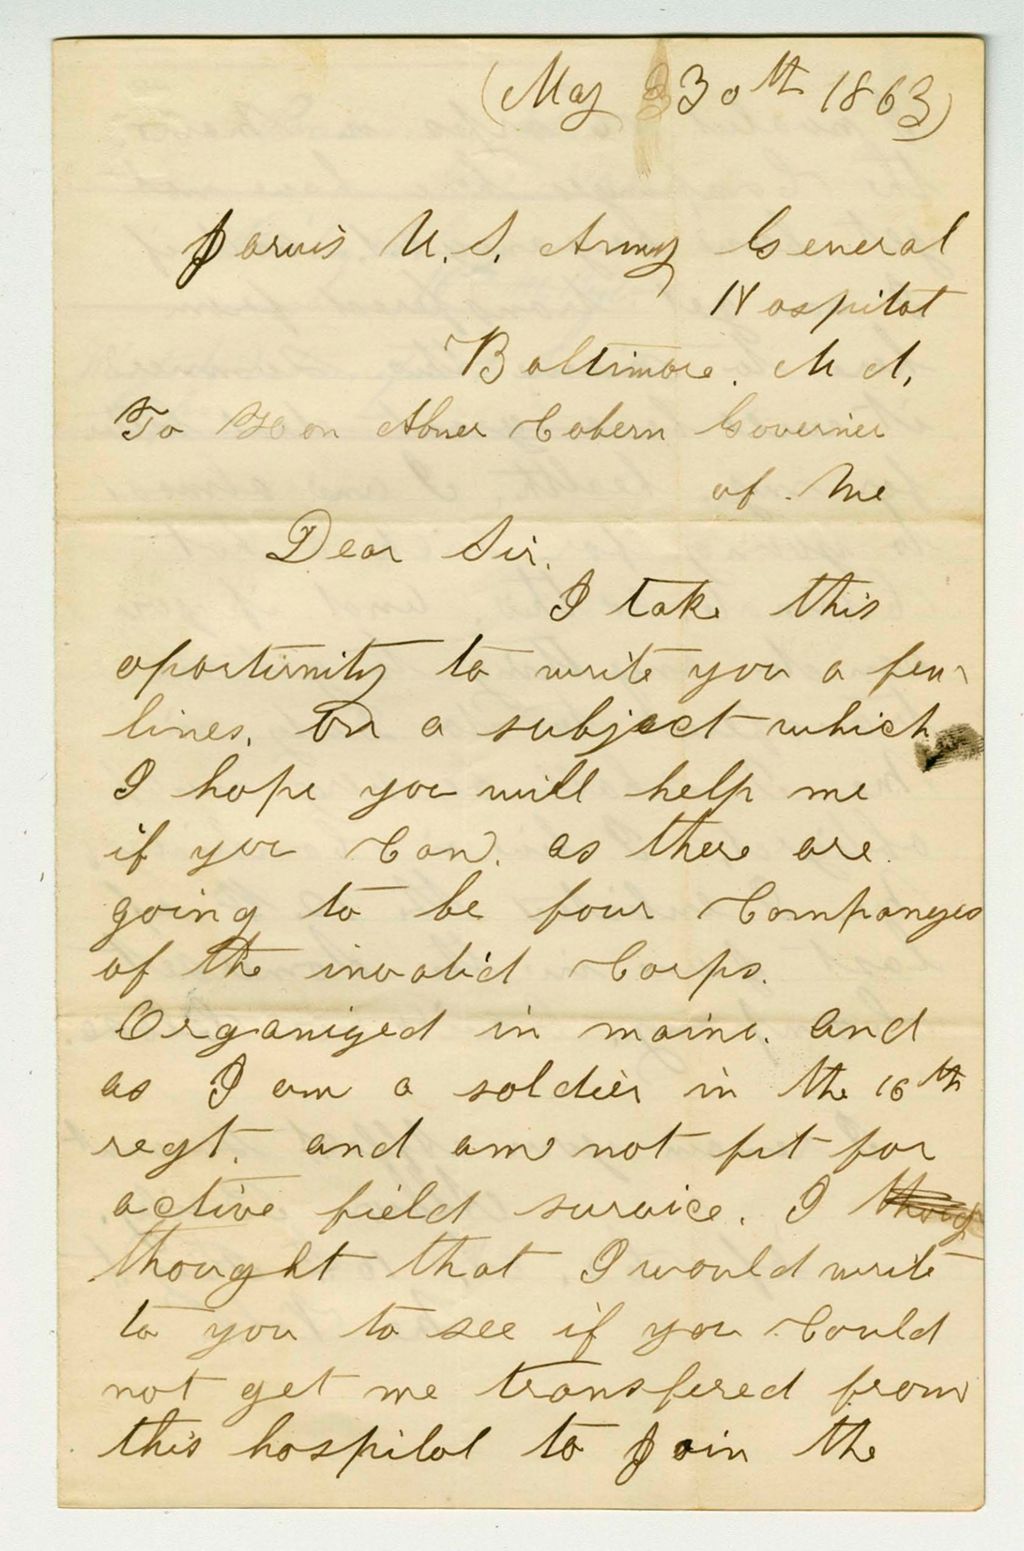 (May 30th 1863)
Jarvis U.S. Army General
Hospital
Baltimore. Md.
To Hon Abner Cobern Governer
of. Me
Dear Sir.
I take this
oportunity to write you a few
lines. on a subject which
I hope you will help me
if you Can. as there are.
going to be four Companyes
of the invalid Corps.
Organized in maine. and
as I am a soldier in the 16th
regt. and am not fit for
active field survice. I
thought that I would write
to you to see if you Could
not get me transfered from
this hospital to Join the